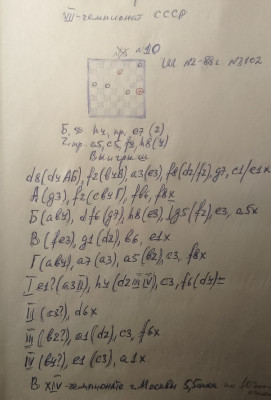 XIV-чемпионат СССР
№10
Ш №2-88г №3102
Б. h4, пр. e7 (2)
Ч. пр. a5, c5, f8, h8 (4)
Выигрыш
d8 (d4 АБ), f2 (b4В), a3 (e3), f8 (d2/f2), g7, c1/e1x
А (g3), f2 (cb4 Г), fb6, f8x
Б (ab4), df6 (g7), h8 (e3), Ig5 (f2), e3, a5x
В (fe3), g1 (d2), b6, e1x
Г (ab4), a7 (a3), a5 (b2), c3, f8x
I e1? (a3 II), h4 (d2 III IV), c3, f6 (d4)=
II (c3?), d6x
III (b2?), a1 (d2), c3, f6x
IV (b4?), e1 (c3), a1x
В XIV-чемпионате г. Москвы 5,5 балла